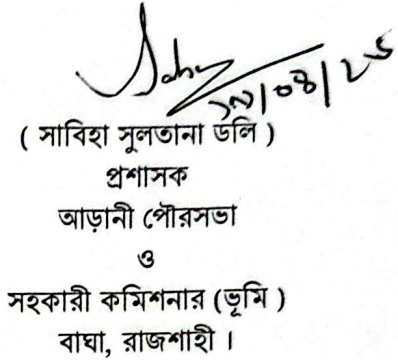 ( সাবিহা সুলতানা ডলি )
প্রশাসক
আড়ানী পৌরসভা
ও
সহকারী কমিশনার (ভূমি )
বাঘা, রাজশাহী ।